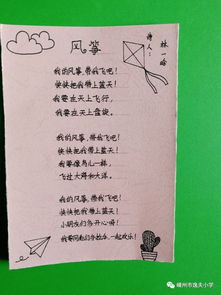 风筝
诗人：林一晗
我的风筝，带我飞吧！
快快把我带上蓝天！
我要在天上飞行，
我要在天上盘旋。
我的风筝，带我飞吧！
快快把我带上蓝天！
我要像鸟儿一样，
飞过大海和大洋。
我的风筝，带我飞吧！
快快把我带上蓝天！
小朋友们多开心呀！
我要同他们手拉手，一起欢乐！
嵊州市逸夫小学